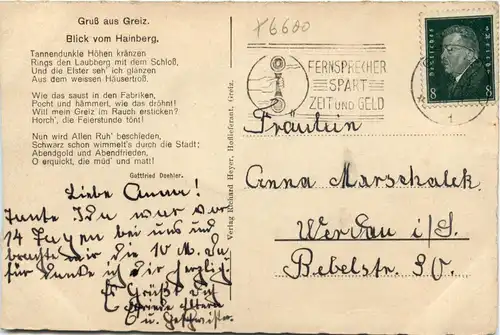 Gruß aus Greiz.
Blick vom Hainberg.
Tannendunkle Höhen kränzen
Rings den Laubberg mit dem Schloß,
Und die Elster seh' ich glänzen
Aus dem weissen Häusertroß.
Wie das saust in den Fabriken,
Pocht und hämmert, wie das dröhnt!
Will mein Greiz im Rauch ersticken?
Horch', die Feierstunde tönt!
Nun wird Allen Ruh' beschieden,
Schwarz schon wimmelt's durch die Stadt;
Abendgold und Abendfrieden,
O erquickt, die müd' und matt!
Gottfried Doehler.
Liebe Anna!
Tante Ida war vor
14 Tagen bei uns und
brachte mir die 10 M. Da-
für danke ich dir herzlich.
Es Grüßt dich
Eltern
u. Geschwister
Verlag Richard Heyer, Hoflieferant, Greiz.
X6600
FERNSPRECHER
SPART
ZEIT UND GELD
Deutsches Reich
8 8
1
Fräulein
Anna Marschalek
Werdau i/S.
Bebelstr. 90.